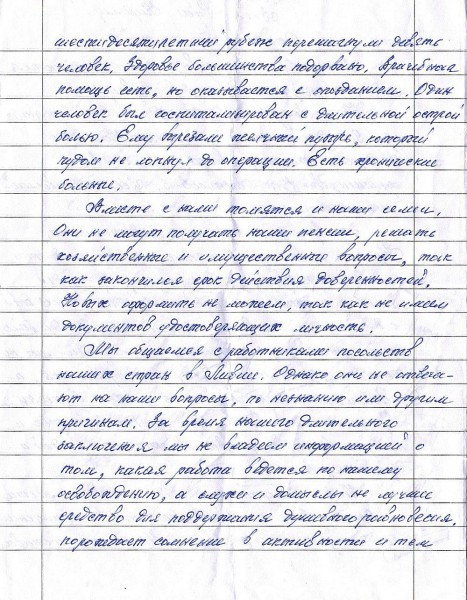 шестидесятилетний рубеж перешагнули девять
человек. Здоровье большинства подорвано. Врачебная
помощь есть, но оказывается с опозданием. Один
человек был госпитализирован с длительной острой
болью. Ему вырезали желчный пузырь, который
чудом не лопнул до операции. Есть хронические
больные.
Вместе с нами томятся и наши семьи.
Они не могут получать наши пенсии, решать
хозяйственные и имущественные вопросы, так
как закончился срок действия доверенностей.
Новых оформить не можем, так как не имеем
документов удостоверяющих личность.
Мы общаемся с работниками посольств
наших стран в Ливии. Однако они не отвеча-
ют на наши вопросы, по незнанию или другим
причинам. За время нашего длительного
заключения мы не владеем информацией о
том, какая работа ведется по нашему
освобождению, а слухи и домыслы не лучшее
средство для поддержания душевного равновесия,
порождает сомнение в активности и тем